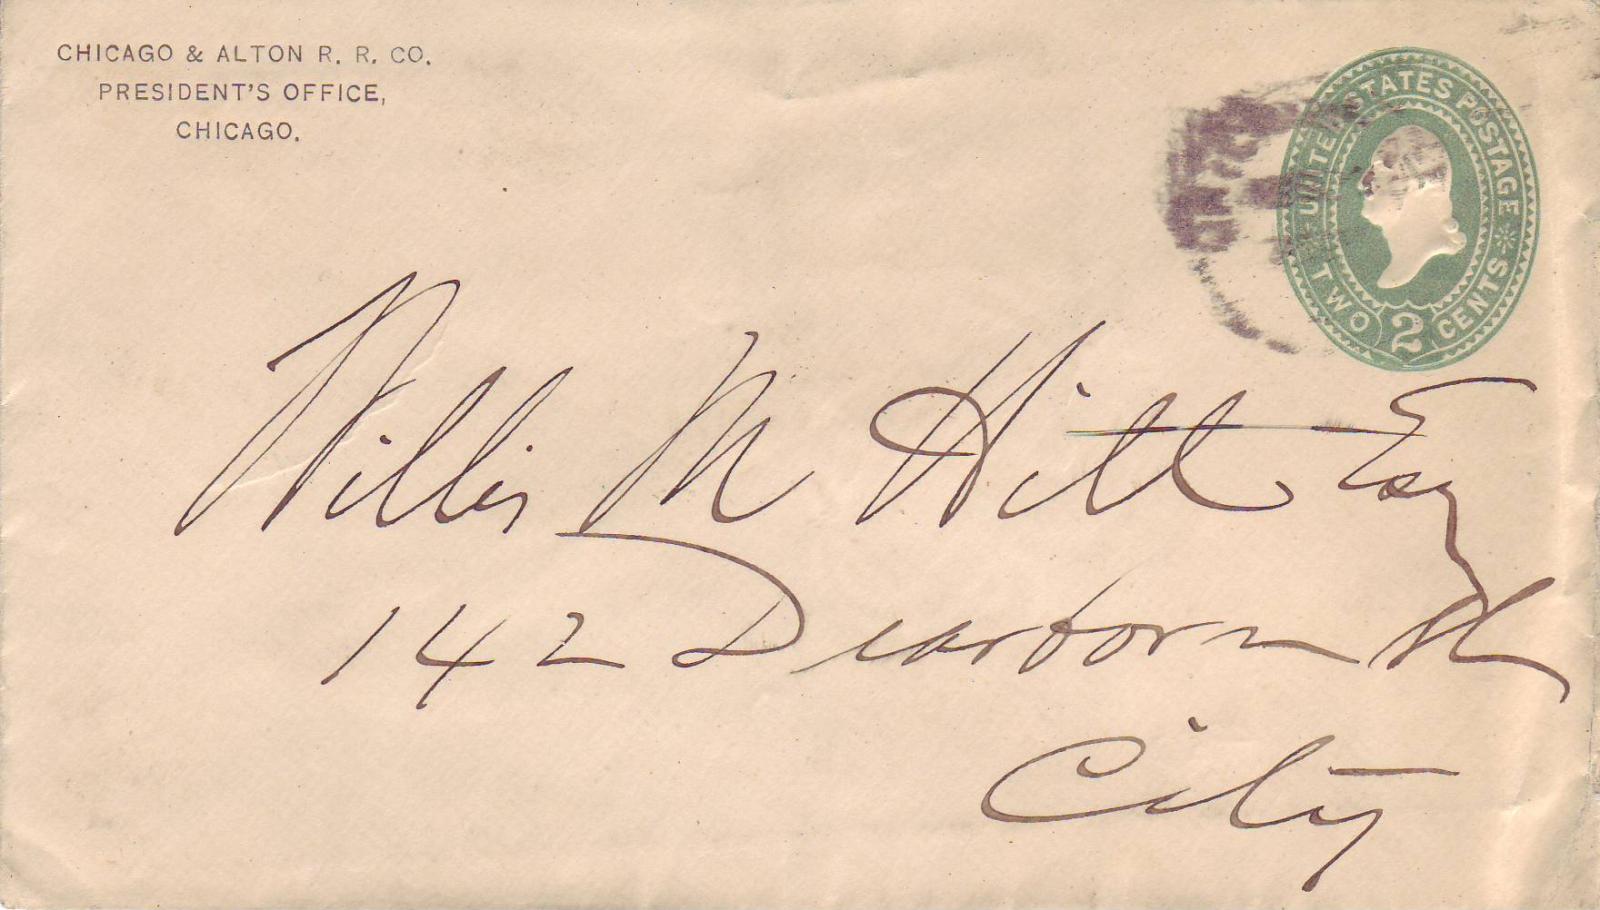 CHICAGO & ALTON R. R. CO.
PRESIDENT'S OFFICE,
CHICAGO.
UNITED STATES POSTAGE
TWO 2 CENTS
Willis M Hitt Esq
142 Dearborn St
City